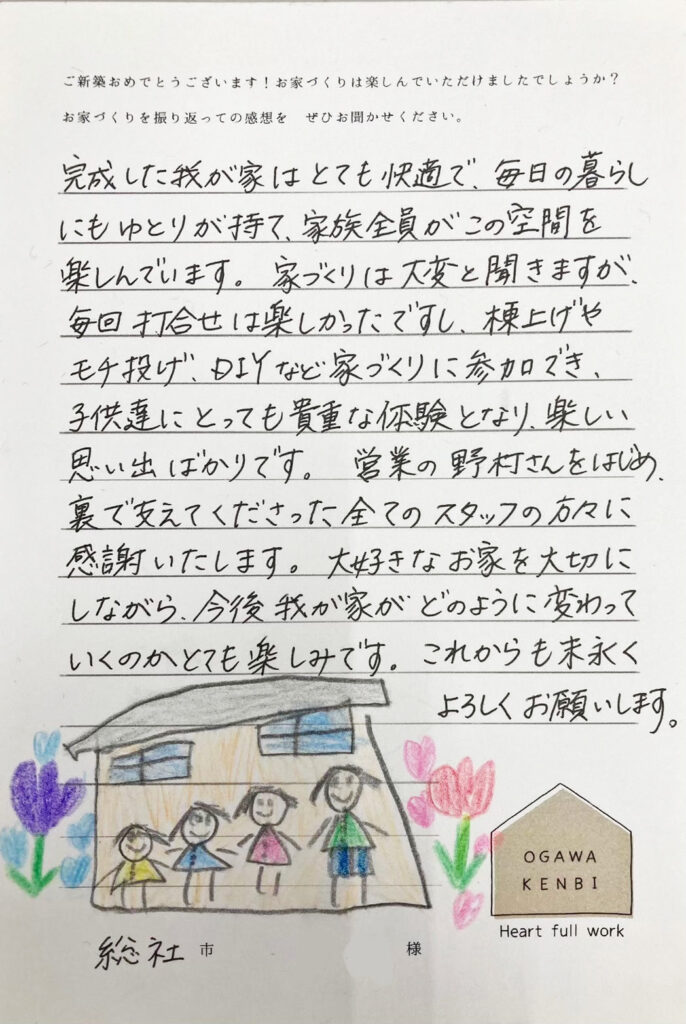 ご新築おめでとうございます！お家づくりは楽しんでいただけましたでしょうか？
お家づくりを振り返っての感想を　ぜひお聞かせください。
完成した我が家はとても快適で、毎日の暮らし
にもゆとりが持て、家族全員がこの空間を
楽しんでいます。家づくりは大変と聞きますが、
毎回打合せは楽しかったですし、棟上げや
モチ投げ、DIYなど家づくりに参加でき、
子供達にとっても貴重な体験となり、楽しい
思い出ばかりです。　営業の野村さんをはじめ、
裏で支えてくださった全てのスタッフの方々に
感謝いたします。大好きなお家を大切に
しながら、今後我が家がどのように変わって
いくのかとても楽しみです。これからも末永く
よろしくお願いします。
OGAWA
KENBI
Heart full work
総社 市　様